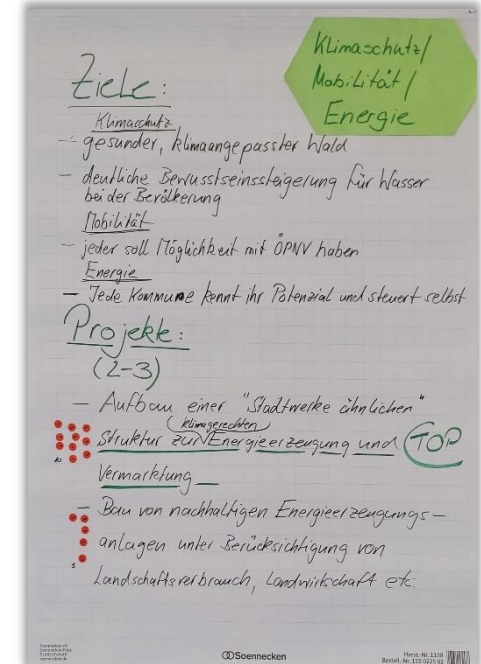 Klimaschutz/
Mobilität/
Energie
Ziele:
Klimaschutz
- gesunder, klimaangepasster Wald
- deutliche Bewusstseinssteigerung für Wasser
bei der Bevölkerung
Mobilität
- jeder soll Möglichkeit mit ÖPNV haben
Energie
- Jede Kommune kennt ihr Potenzial und steuert selbst
Projekte:
(2-3)
- Aufbau einer "Stadtwerke ähnlichen"
klimagerechten
Struktur zur Energieerzeugung und TOP
Vermarktung
- Bau von nachhaltigen Energieerzeugungs-
anlagen unter Berücksichtigung von
Landschaftsverbrauch, Landwirtschaft etc.
Soennecken